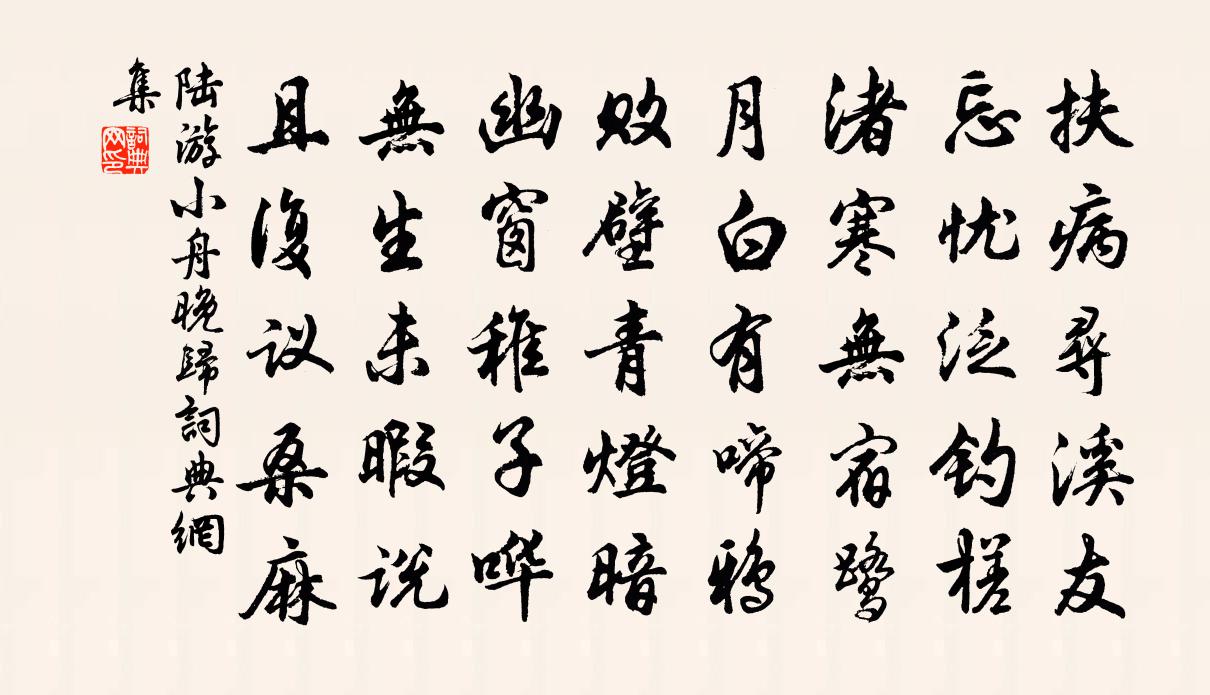 扶病尋溪友
忘忧泛钓槎
渚寒無宿鹭
月白有啼鸦
败壁青燈暗
幽窗稚子哗
無生未暇说
且復议桑麻
陆游小舟晚歸詞典網
集
詞典网印